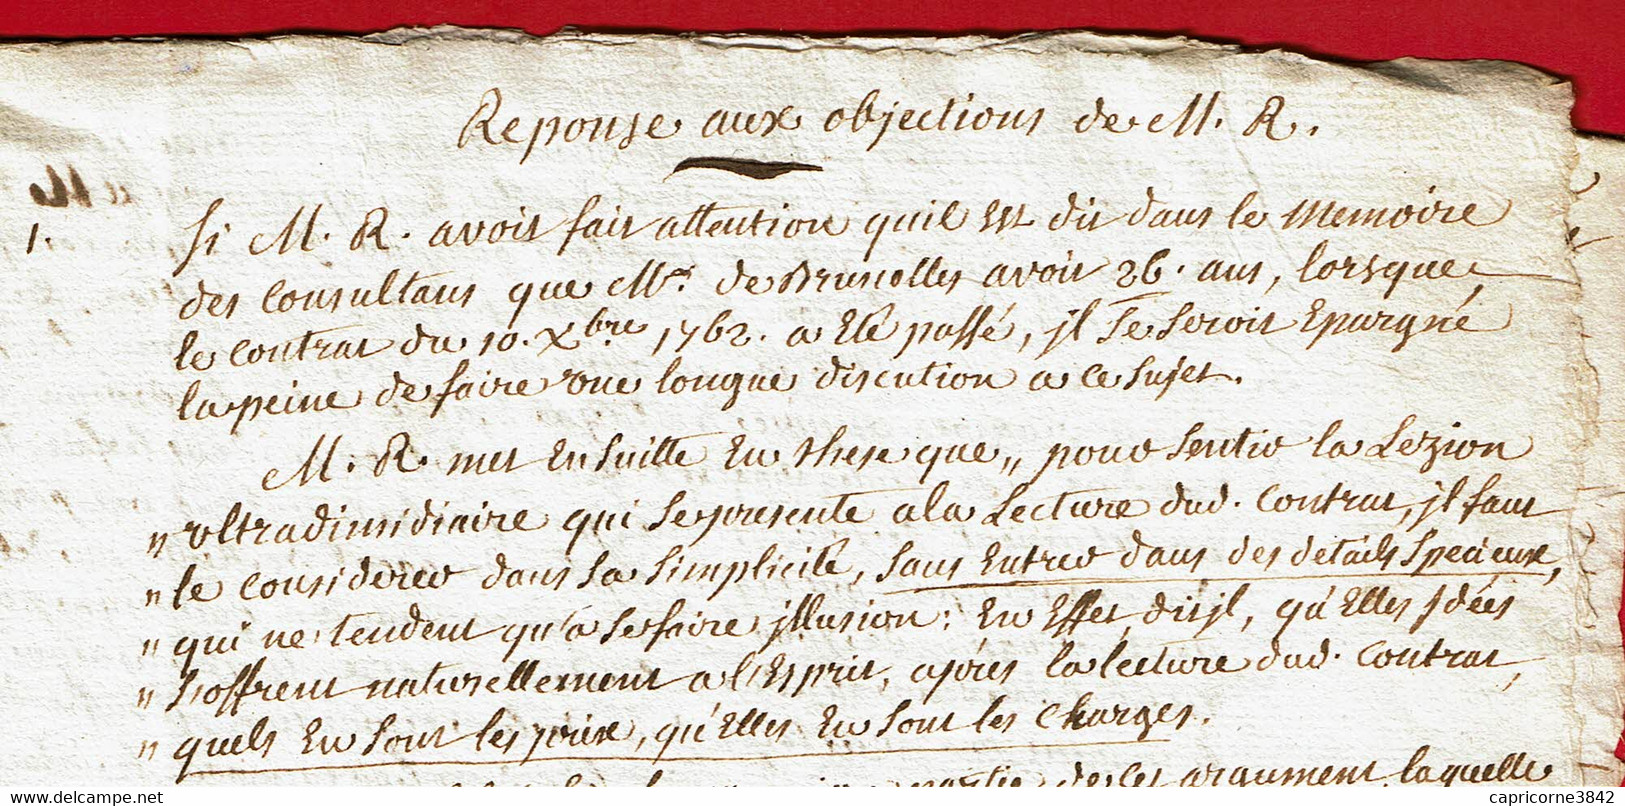 Reponse aux objections de M. R.
1. Si M. R. avoit fait attention quil Est dit dans le Memoire
des Consultans que Mr. de Bruxelles avoit 26. ans, lorsque
le Contrat du 10. Xbre 1762. a Eté passé, jl Se Seroit Epargné
la peine de faire une longue discution a ce Sujet.
M. R. met En Suitte En these que „ pour Sentir la Lezion
„ Ultradimidiaire qui Se presente a la Lecture dud. Contrat, jl faut
„ le Considerer dans Sa Simplicité, Sans Entrer dans des details Specieux,
„ qui ne tendent qu'a Se faire jllusion; En Effet, dit jl, qu'Elles Jdées
„ S'offrent naturellement a l'Esprit, après la lecture dud. Contrat,
„ quels En Sont les prix, qu'Elles En Sont les Charges.
partie de Cet argument, laquelle
delcampe.net
capricorne3842